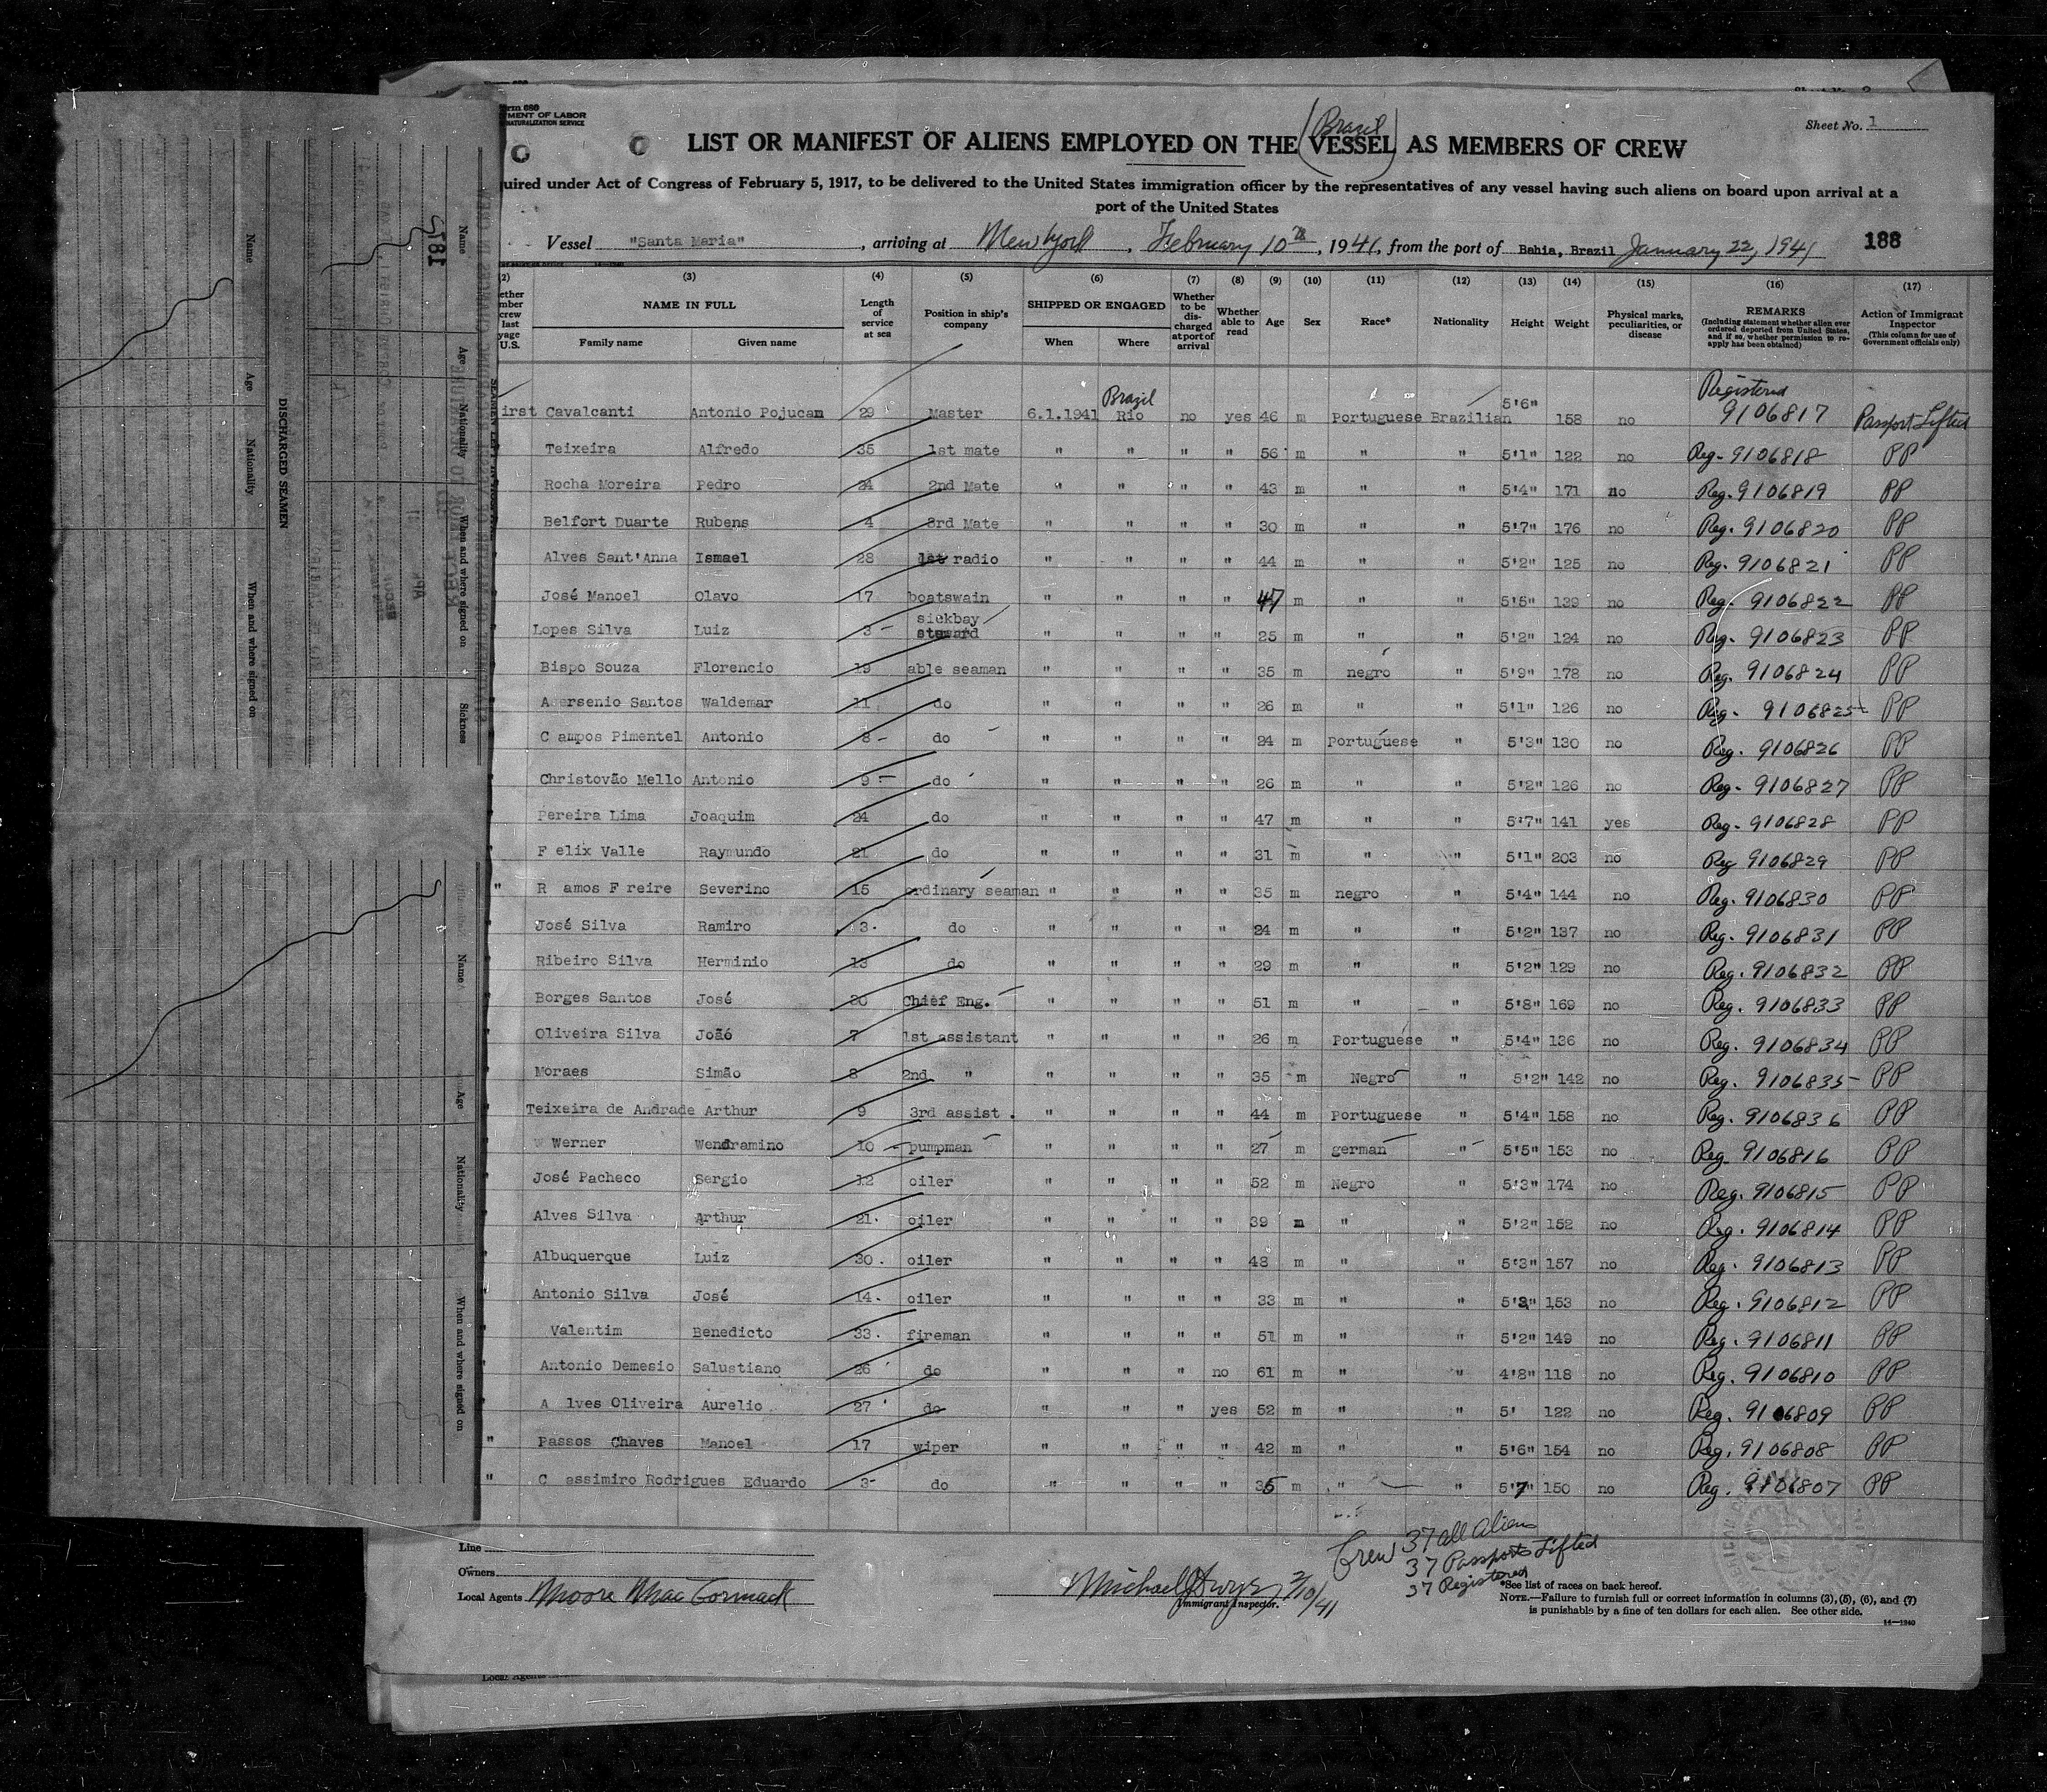 Form 680
TMENT OF LABOR
NATURALIZATION SERVICE
Sheet No. 1
(Brazil)
LIST OR MANIFEST OF ALIENS EMPLOYED ON THE VESSEL AS MEMBERS OF CREW
uired under Act of Congress of February 5, 1917, to be delivered to the United States immigration officer by the representatives of any vessel having such aliens on board upon arrival at a
port of the United States
Vessel "Santa Maria", arriving at New York, February 10th, 1941, from the port of Bahia, Brazil January 22, 1941
188
(2) (3) (4) (5) (6) (7) (8) (9) (10) (11) (12) (13) (14) (15) (16) (17)
ether mber crew last yage U.S. NAME IN FULL Family name Given name Length of service at sea Position in ship's company SHIPPED OR ENGAGED When Where Whether to be discharged at port of arrival Whether able to read Age Sex Race* Nationality Height Weight Physical marks, peculiarities, or disease REMARKS (Including statement whether alien ever ordered deported from United States, and if so, whether permission to reapply has been obtained) Action of Immigrant Inspector (This column for use of Government officials only)
irst Cavalcanti Antonio Pojucan 29 Master 6.1.1941 Brazil Rio no yes 46 m Portuguese Brazilian 5'6" 158 no Registered 9106817 Passport Lifted
Teixeira Alfredo 35 1st mate " " " " 56 m " " 5'1" 122 no Reg- 9106818 PP
Rocha Moreira Pedro 24 2nd Mate " " " " 43 m " " 5'4" 171 no Reg. 9106819 PP
Belfort Duarte Rubens 4 3rd Mate " " " " 30 m " " 5'7" 176 no Reg. 9106820 PP
Alves Sant'Anna Ismael 28 1st radio " " " " 44 m " " 5'2" 125 no Reg. 9106821 PP
José Manoel Olavo 17 boatswain " " " " 47 m " " 5'5" 139 no Reg. 9106822 PP
Lopes Silva Luiz 3 sickbay steward " " " " 25 m " " 5'2" 124 no Reg. 9106823 PP
Bispo Souza Florencio 19 able seaman " " " " 35 m negro " 5'9" 178 no Reg. 9106824 PP
Asersenio Santos Waldemar 11 do " " " " 26 m " " 5'1" 126 no Reg. 9106825 PP
C ampos Pimentel Antonio 8 do " " " " 24 m Portuguese " 5'3" 130 no Reg. 9106826 PP
Christovão Mello Antonio 9 do " " " " 26 m " " 5'2" 126 no Reg- 9106827 PP
Pereira Lima Joaquim 24 do " " " " 47 m " " 5'7" 141 yes Reg- 9106828 PP
F elix Valle Raymundo 21 do " " " " 31 m " " 5'1" 203 no Reg 9106829 PP
" R amos F reire Severino 15 ordinary seaman " " " " 35 m negro " 5'4" 144 no Reg. 9106830 PP
José Silva Ramiro 3 do " " " " 24 m " " 5'2" 137 no Reg. 9106831 PP
Ribeiro Silva Herminio 13 do " " " " 29 m " " 5'2" 129 no Reg. 9106832 PP
Borges Santos José 20 Chief Eng. " " " " 51 m " " 5'8" 169 no Reg. 9106833 PP
" Oliveira Silva João 7 1st assistant " " " " 26 m Portuguese " 5'4" 136 no Reg. 9106834 PP
" Moraes Simão 8 2nd " " " " " 35 m Negro " 5'2" 142 no Reg. 9106835 PP
" Teixeira de Andrade Arthur 9 3rd assist. " " " " 44 m Portuguese " 5'4" 158 no Reg. 9106836 PP
" Werner Wendramino 10 pumpman " " " " 27 m german " 5'5" 153 no Reg. 9106816 PP
" José Pacheco Sergio 12 oiler " " " " 52 m Negro " 5'3" 174 no Reg. 9106815 PP
" Alves Silva Arthur 21. oiler " " " " 39 m " " 5'2" 152 no Reg. 9106814 PP
" Albuquerque Luiz 30. oiler " " " " 48 m " " 5'3" 157 no Reg. 9106813 PP
" Antonio Silva José 14. oiler " " " " 33 m " " 5'3" 153 no Reg. 9106812 PP
" Valentim Benedicto 33. fireman " " " " 51 m " " 5'2" 149 no Reg. 9106811 PP
" Antonio Demesio Salustiano 26 do " " " no 61 m " " 4'8" 118 no Reg. 9106810 PP
" A lves Oliveira Aurelio 27 do " " " yes 52 m " " 5' 122 no Reg. 9106809 PP
" Passos Chaves Manoel 17 wiper " " " " 42 m " " 5'6" 154 no Reg. 9106808 PP
" C assimiro Rodrigues Eduardo 3 do " " " " 35 m " " 5'7" 150 no Reg. 9106807 PP
Crew 37 all Aliens
37 Passports Lifted
37 Registered
Line
Owners
Local Agents Moore MacCormack
Michael Dwyer 2/10/41
Immigrant Inspector.
*See list of races on back hereof.
NOTE.—Failure to furnish full or correct information in columns (3), (5), (6), and (7)
is punishable by a fine of ten dollars for each alien. See other side.
14—1940
Local Agents
187
DISCHARGED SEAMEN
Name Age Nationality When and where signed on
Name Age Nationality When and where signed on Sickness
Name Age Nationality When and where signed on